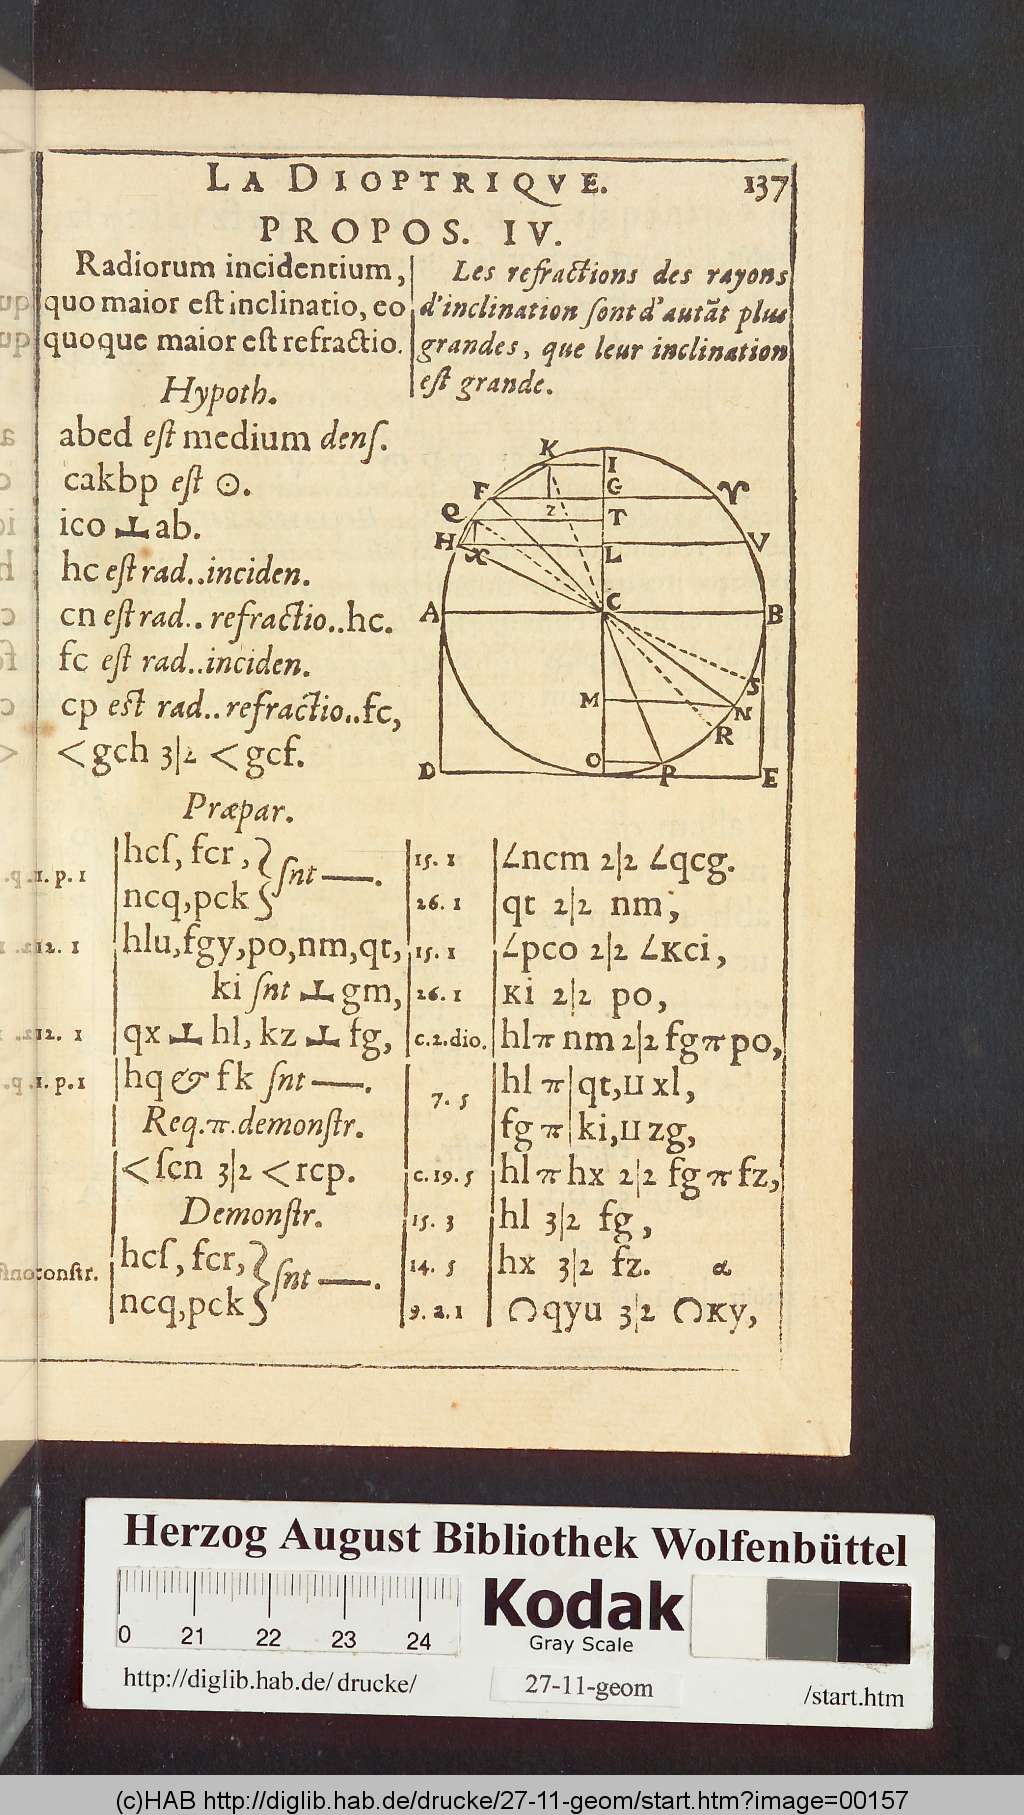 LA DIOPTRIQVE. 137
PROPOS. IV.
Radiorum incidentium,
quo maior eſt inclinatio, eo
quoque maior eſt refractio.
Les refractions des rayons
d'inclination ſont d'autãt plus
grandes, que leur inclination
eſt grande.
Hypoth.
abed eſt medium denſ.
cakbp eſt ⊙.
ico ⊥ ab.
hc eſt rad..inciden.
cn eſt rad.. refractio..hc.
fc eſt rad..inciden.
cp est rad..refractio..fc,
< gch 3|2 < gcf.
K
I
F
G
♈
Q
Z
T
H
X
L
V
A
C
B
S
M
N
R
D
O
P
E
Præpar.
1. p. 1
hcſ, fcr, } ſnt —.
ncq, pck
12. 1
hlu, fgy, po, nm, qt,
ki ſnt ⊥ gm,
12. 1
qx ⊥ hl, kz ⊥ fg,
1. p. 1
hq & fk ſnt —.
Req. π. demonſtr.
< ſcn 3|2 < rcp.
Demonſtr.
conſtr.
hcſ, fcr, } ſnt —.
ncq, pck
15. 1 ∠ncm 2|2 ∠qcg.
26. 1 qt 2|2 nm;
15. 1 ∠pco 2|2 ∠kci,
26. 1 ki 2|2 po,
c.2.dio. hl π nm 2|2 fg π po,
7. 5
hl π | qt, ⊔ xl,
fg π | ki, ⊔ zg,
c. 19. 5 hl π hx 2|2 fg π fz,
15. 3 hl 3|2 fg,
14. 5 hx 3|2 fz. α
9. 2. 1 ∩ qyu 3|2 ∩ ky,
Herzog August Bibliothek Wolfenbüttel
0 21 22 23 24
Kodak
Gray Scale
http://diglib.hab.de/drucke/ 27-11-geom /start.htm
(c)HAB http://diglib.hab.de/drucke/27-11-geom/start.htm?image=00157